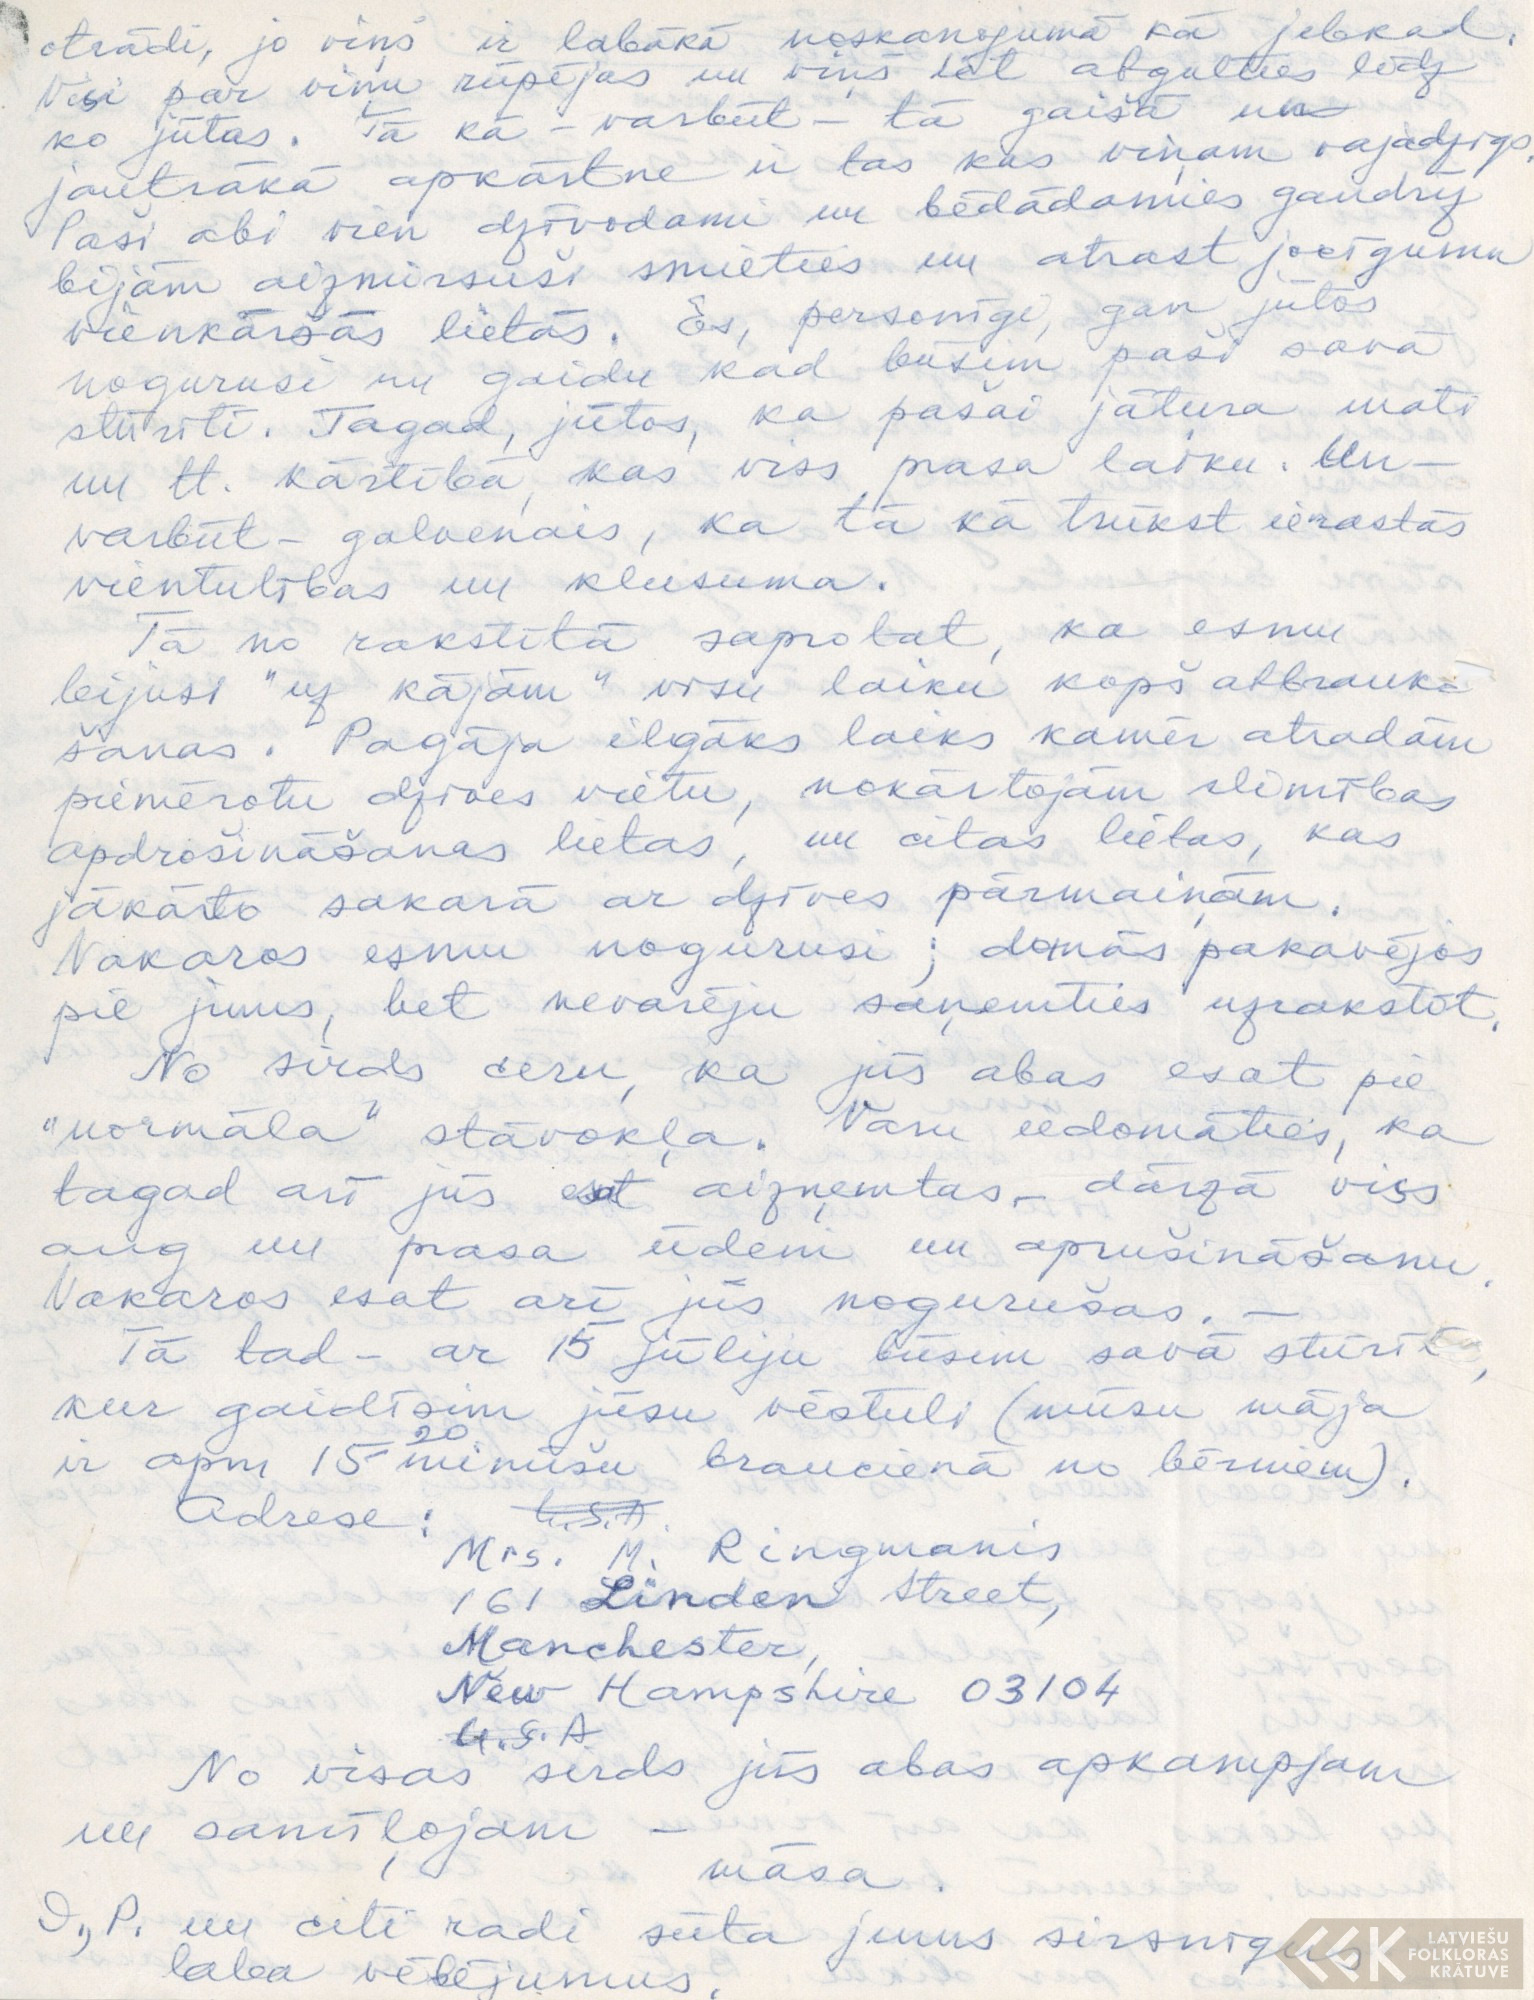 otrādi, jo viņš ir labākā noskaņojumā kā jebkad.
Visi par viņu rūpējas un viņš iet atgulties līdz
ko jūtas. Tā kā – varbūt – tā gaišā un
jautrākā apkārtne ir tas kas viņam vajadzīgs.
Paši abi vien dzīvodami un bēdādamies gandrīz
bijām aizmirsuši smieties un atrast jocīgumu
vienkāršās lietās. Es, personīgi, gan jūtos
nogurusi un gaidu kad būsim paši savā
stūrītī. Tagad, jūtos, ka pašai jātura mati
un tt. kārtībā, kas viss prasa laiku. Un –
varbūt – galvenais, ka tā kā trūkst ierastās
vientulības un klusuma.
Tā no rakstītā saprotat, ka esmu
bijusi "uz kājām" visu laiku kopš atbrauk-
šanas. Pagāja ilgāks laiks kamēr atradām
piemērotu dzīves vietu, nokārtojām slimības
apdrošināšanas lietas, un citas lietas, kas
jākārto sakarā ar dzīves pārmaiņām.
Vakaros esmu nogurusi; domās pakavējos
pie jums, bet nevarēju saņemties uzrakstīt.
No sirds ceru, ka jūs abas esat pie
"normāla" stāvokļa. Varu iedomāties, ka
tagad arī jūs esat aizņemtas – dārzā viss
aug un prasa ūdeni un aprušināšanu.
Vakaros esat arī jūs nogurušas. –
Tā tad – ar 15 jūliju būsim savā stūrītī,
kur gaidīsim jūsu vēstuli (mūsu māja
ir apm 15-20 minūšu braucienā no bērniem).
Adrese: U.S.A.
Mrs. M. Ringmanis
161 Linden Street,
Manchester,
New Hampshire 03104
U.S.A
No visas sirds jūs abas apkampjam
un samīļojam –
māsa.
D., P. un citi radi sūta jums sirsnīgus
laba vēlējumus.
LATVIEŠU
FOLKLORAS
KRĀTUVE